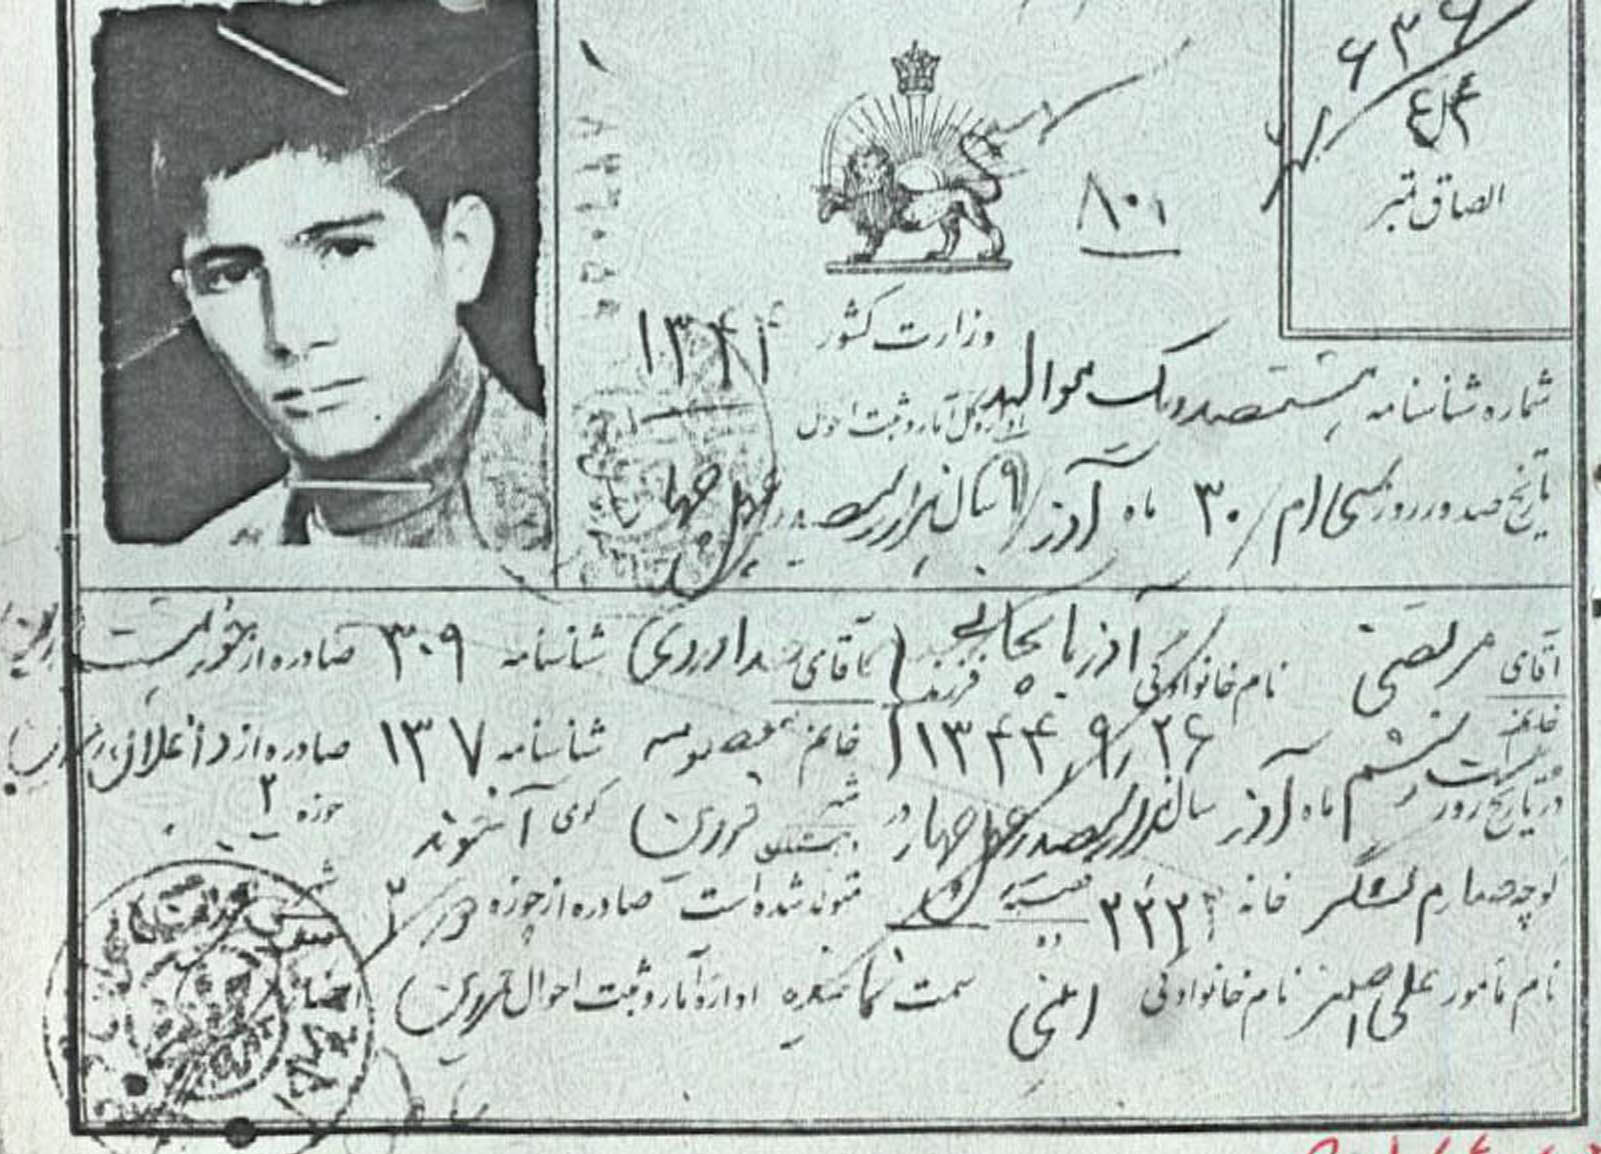 ۶۳۶
الصاق تمبر
۸۰۱
وزارت کشور
۱۳۴۴
اداره کل آمار و ثبت احوال
شماره شناسنامه هشتصد و یک موالید
تاریخ صدور روز سی ام / ۳۰ ماه آذر / ۹ سال هزار و سیصد و چهل و چهار
آقای مرتضی نام خانوادگی آذربایجانی فرزند آقای شناسنامه ۳۰۹ صادره از
خانم ۲۶ / ۹ / ۱۳۴۴ خانم معصومه شناسنامه ۱۳۷ صادره از
در تاریخ روز بیست و ششم ماه آذر سال هزار و سیصد و چهل و چهار در شهر قزوین کوی آخوند حوزه ۲
کوچه لشگر خانه متولد شده است صادره از حوزه دو ۲
نام مامور علی اصغر نام خانوادگی امنی سمت نماینده اداره آمار و ثبت احوال قزوین امضاء